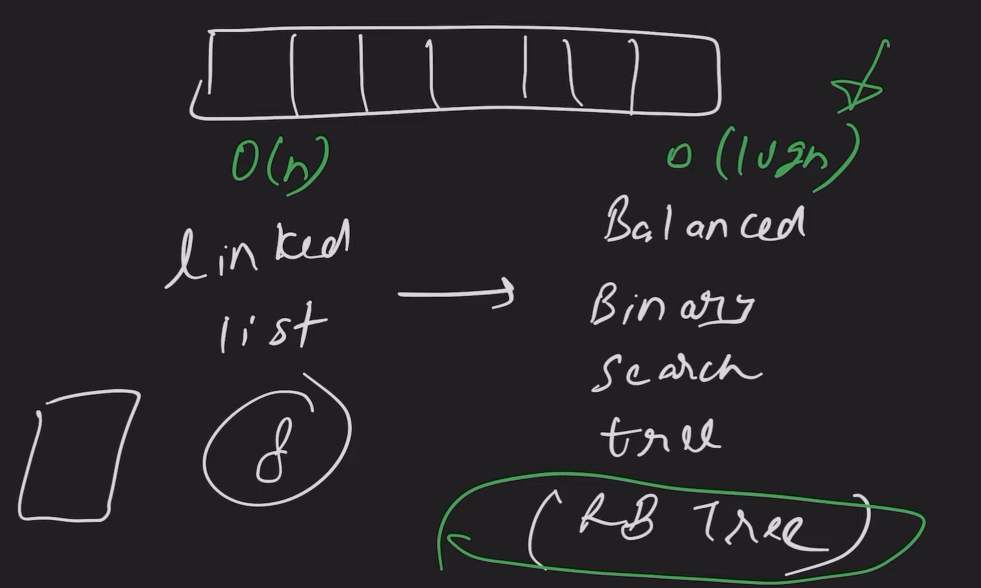 O(n)
O(logn)
linked
list
Balanced
Binary
Search
tree
8
(RB Tree)